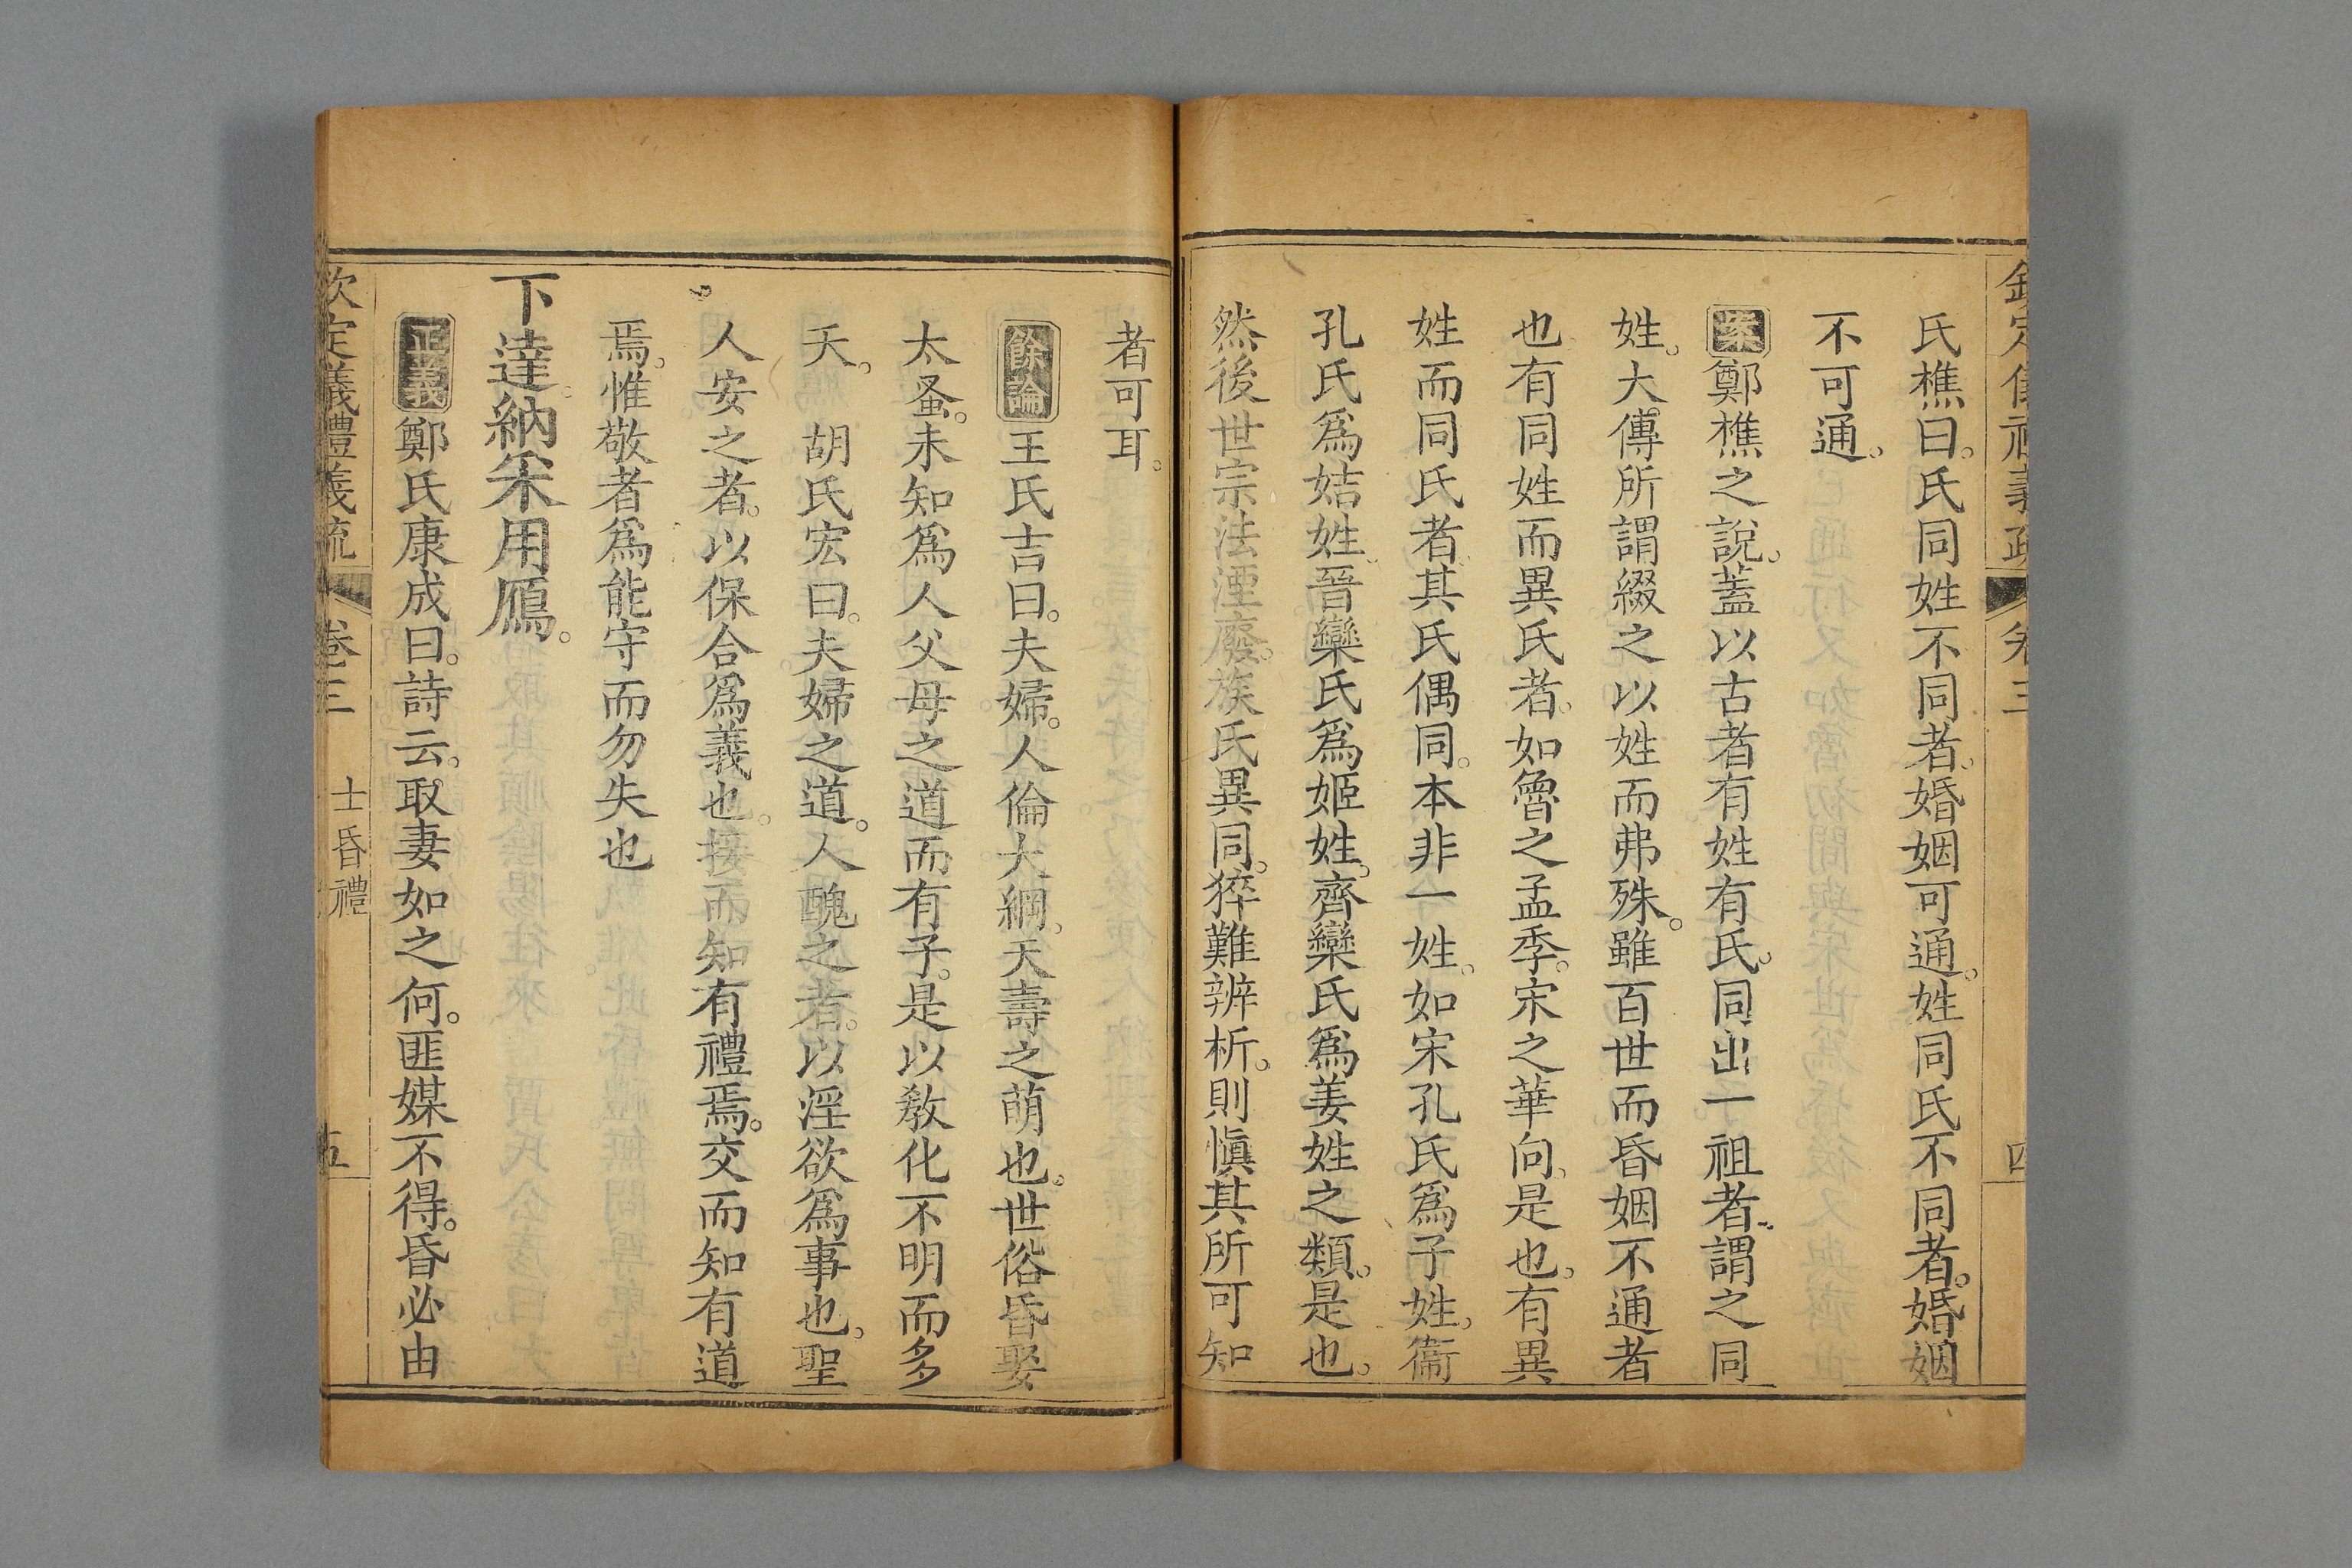 氏樵曰。氏同姓不同者。婚姻可通。姓同氏不同者。婚姻
不可通。
案鄭樵之説。蓋以古者有姓有氏。同出一祖者。謂之同
姓。大傳所謂綴之以姓而弗殊。雖百世而昏姻不通者
也有同姓而異氏者。如魯之孟季。宋之華向。是也。有異
姓而同氏者。其氏偶同。本非一姓。如宋孔氏爲子姓。衞
孔氏爲姞姓。晉欒氏爲姬姓。齊欒氏爲姜姓之類。是也。
然後世宗法湮廢。族氏異同。猝難辨析。則愼其所可知
者可耳。
餘論王氏吉曰。夫婦。人倫大綱。夭壽之萌也。世俗昏娶
太蚤。未知爲人父母之道而有子。是以敎化不明而多
夭。 胡氏宏曰。夫婦之道。人醜之者。以淫欲爲事也。聖
人安之者。以保合爲義也。接而知有禮焉。交而知有道
焉。惟敬者爲能守而勿失也
下達納采用鴈。
正義鄭氏康成曰。詩云。取妻如之何。匪媒不得。昏必由
欽定義禮義疏 卷三 士昏禮 五